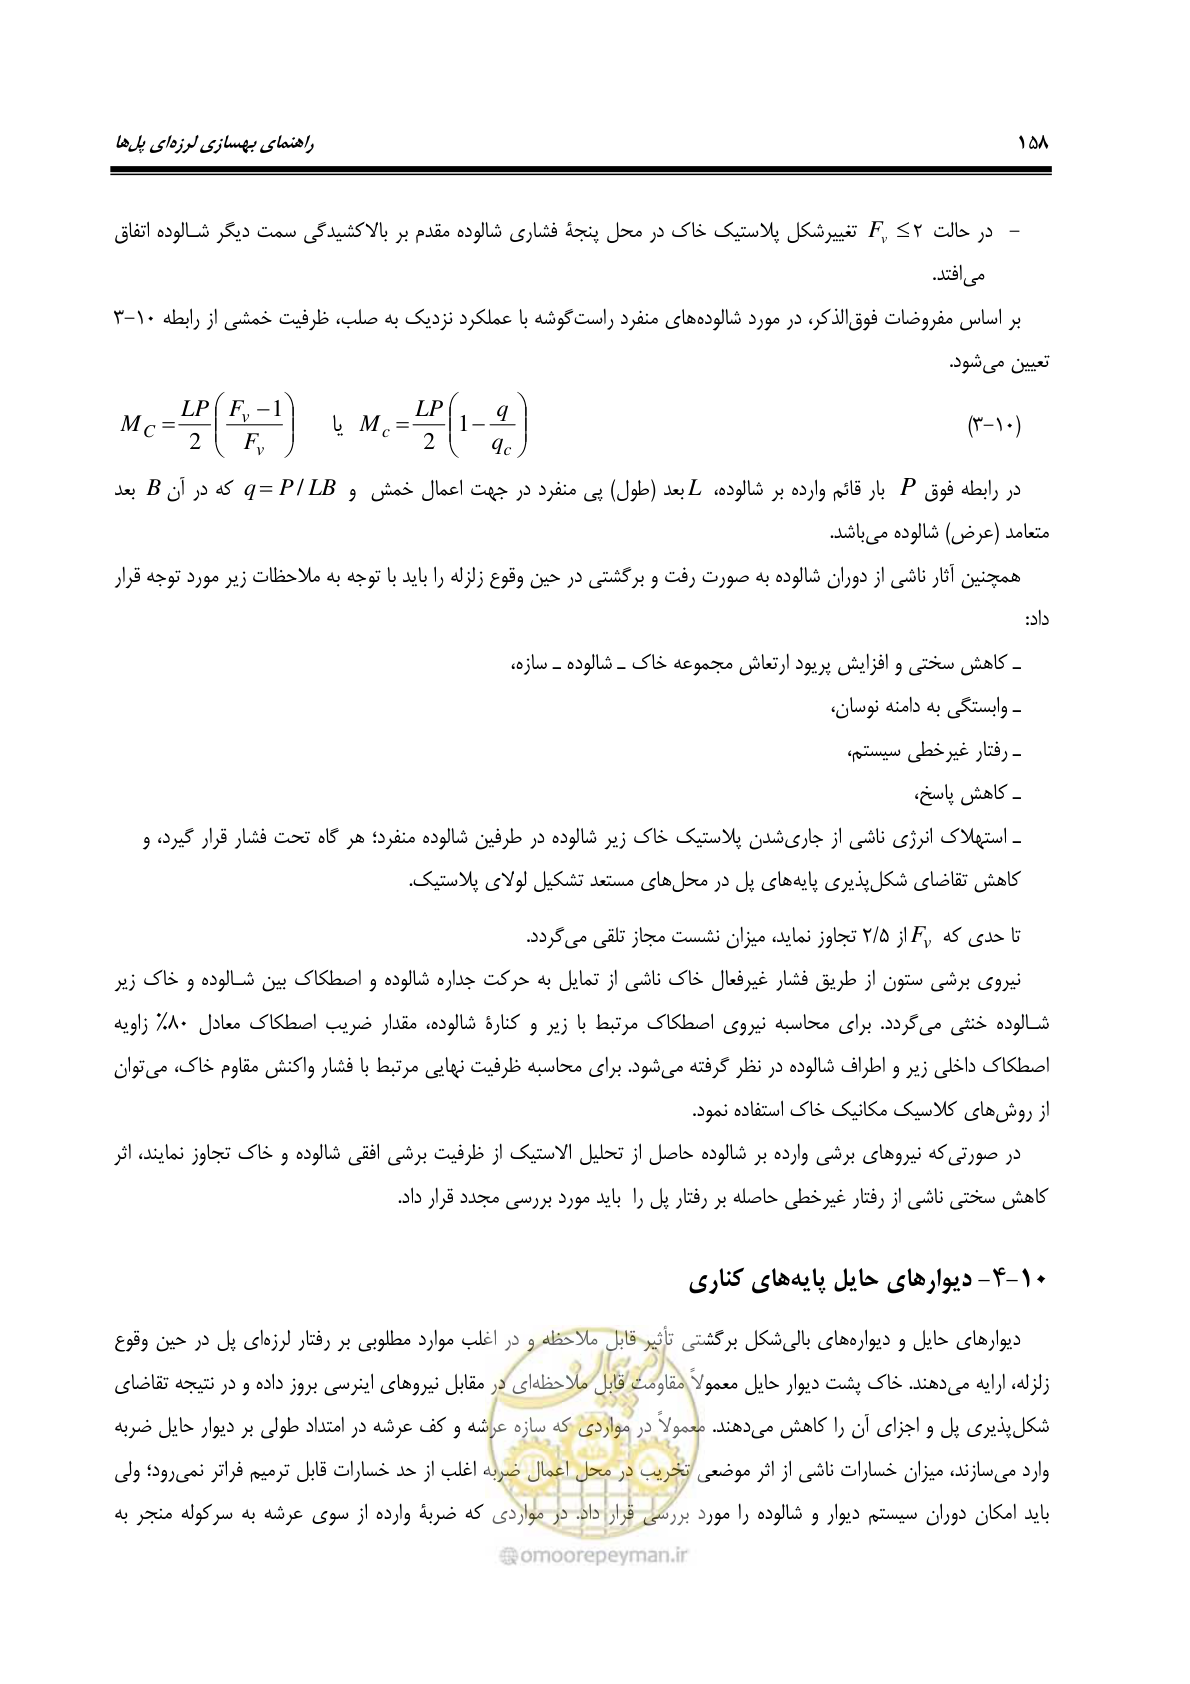 ۱۵۸ راهنمای بهسازی لرزه‌ای پل‌ها
– در حالت F_v ≤ ۲ تغییرشکل پلاستیک خاک در محل پنجهٔ فشاری شالوده مقدم بر بالاکشیدگی سمت دیگر شـالوده اتفاق
می‌افتد.
بر اساس مفروضات فوق‌الذکر، در مورد شالوده‌های منفرد راست‌گوشه با عملکرد نزدیک به صلب، ظرفیت خمشی از رابطه ۱۰-۳
تعیین می‌شود.
(۳-۱۰) M_c = LP/2 (1 − q/q_c) یا M_C = LP/2 ((F_v − 1)/F_v)
در رابطه فوق P بار قائم وارده بر شالوده، L بعد (طول) پی منفرد در جهت اعمال خمش و q = P / LB که در آن B بعد
متعامد (عرض) شالوده می‌باشد.
همچنین آثار ناشی از دوران شالوده به صورت رفت و برگشتی در حین وقوع زلزله را باید با توجه به ملاحظات زیر مورد توجه قرار
داد:
ـ کاهش سختی و افزایش پریود ارتعاش مجموعه خاک ـ شالوده ـ سازه،
ـ وابستگی به دامنه نوسان،
ـ رفتار غیرخطی سیستم،
ـ کاهش پاسخ،
ـ استهلاک انرژی ناشی از جاری‌شدن پلاستیک خاک زیر شالوده در طرفین شالوده منفرد؛ هر گاه تحت فشار قرار گیرد، و
کاهش تقاضای شکل‌پذیری پایه‌های پل در محل‌های مستعد تشکیل لولای پلاستیک.
تا حدی که F_v از ۲/۵ تجاوز نماید، میزان نشست مجاز تلقی می‌گردد.
نیروی برشی ستون از طریق فشار غیرفعال خاک ناشی از تمایل به حرکت جداره شالوده و اصطکاک بین شـالوده و خاک زیر
شـالوده خنثی می‌گردد. برای محاسبه نیروی اصطکاک مرتبط با زیر و کنارهٔ شالوده، مقدار ضریب اصطکاک معادل ۸۰٪ زاویه
اصطکاک داخلی زیر و اطراف شالوده در نظر گرفته می‌شود. برای محاسبه ظرفیت نهایی مرتبط با فشار واکنش مقاوم خاک، می‌توان
از روش‌های کلاسیک مکانیک خاک استفاده نمود.
در صورتی‌که نیروهای برشی وارده بر شالوده حاصل از تحلیل الاستیک از ظرفیت برشی افقی شالوده و خاک تجاوز نمایند، اثر
کاهش سختی ناشی از رفتار غیرخطی حاصله بر رفتار پل را باید مورد بررسی مجدد قرار داد.
۱۰-۴- دیوارهای حایل پایه‌های کناری
دیوارهای حایل و دیواره‌های بالی‌شکل برگشتی تأثیر قابل ملاحظه و در اغلب موارد مطلوبی بر رفتار لرزه‌ای پل در حین وقوع
زلزله، ارایه می‌دهند. خاک پشت دیوار حایل معمولاً مقاومت قابل ملاحظه‌ای در مقابل نیروهای اینرسی بروز داده و در نتیجه تقاضای
شکل‌پذیری پل و اجزای آن را کاهش می‌دهند. معمولاً در مواردی که سازه عرشه و کف عرشه در امتداد طولی بر دیوار حایل ضربه
وارد می‌سازند، میزان خسارات ناشی از اثر موضعی تخریب در محل اعمال ضربه اغلب از حد خسارات قابل ترمیم فراتر نمی‌رود؛ ولی
باید امکان دوران سیستم دیوار و شالوده را مورد بررسی قرار داد. در مواردی که ضربهٔ وارده از سوی عرشه به سرکوله منجر به
امور پیمان
@omoorepeyman.ir